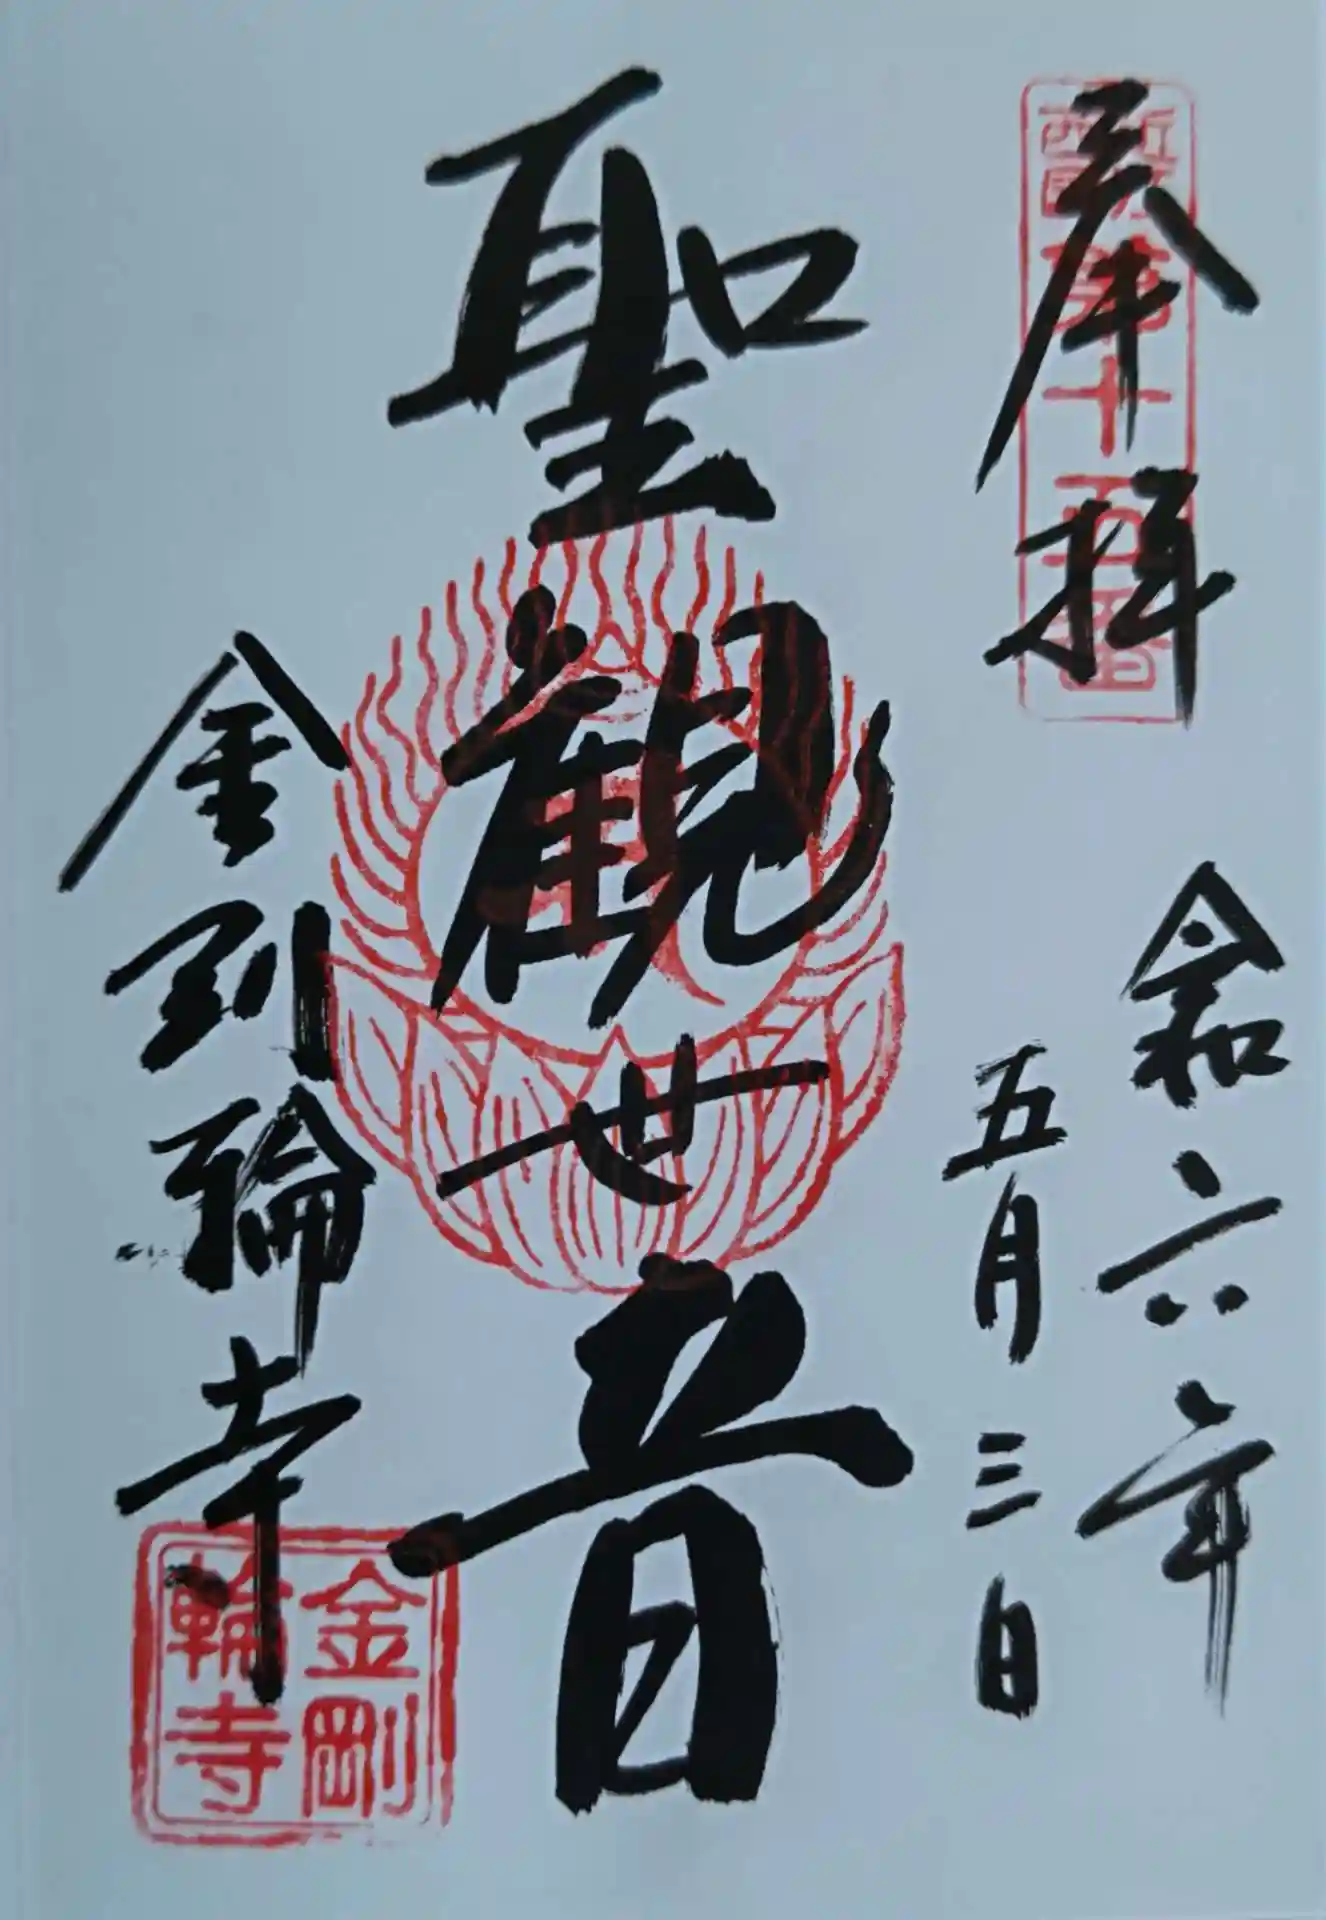 奉拝
近江西国第十五番
令和六年
五月三日
聖観世音
金剛輪寺
金剛
輪寺